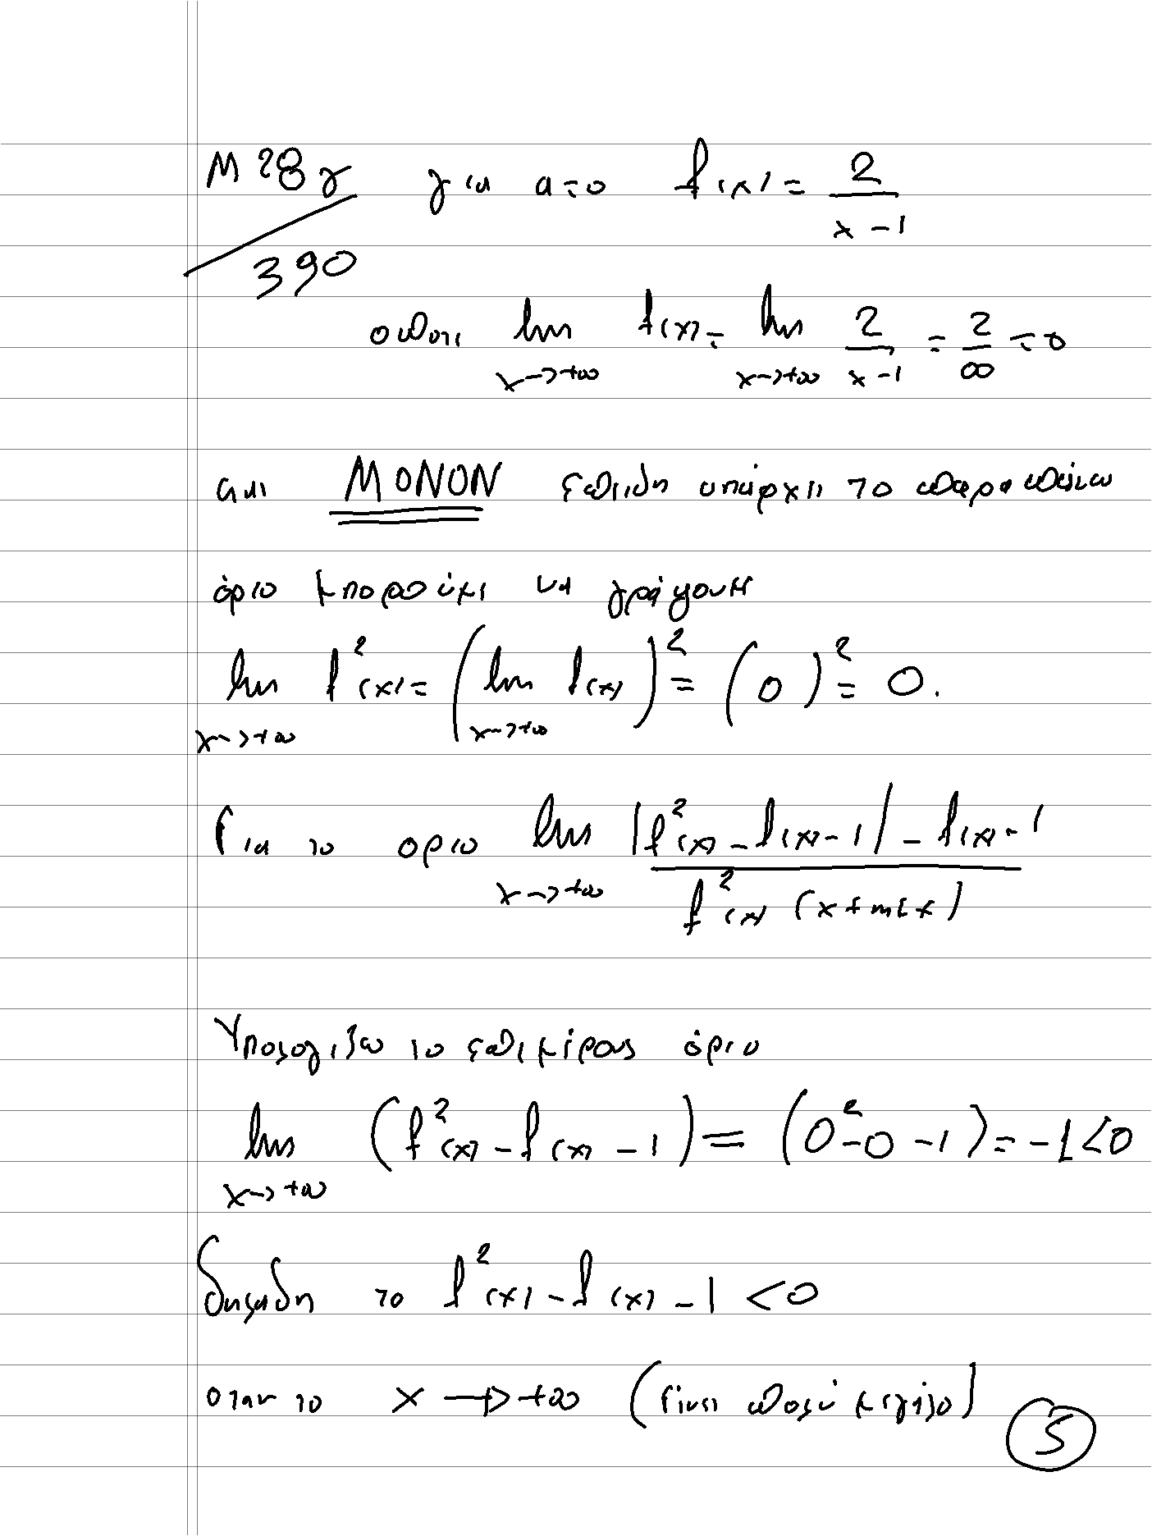 Μ 28γ για a=0 f(x) = 2/(x-1)
390
οπότε lim x→+∞ f(x) = lim x→+∞ 2/(x-1) = 2/∞ = 0
και ΜΟΝΟΝ επειδη υπάρχει το παραπάνω
όριο μπορούμε να γράψουμε
lim x→+∞ f²(x) = (lim x→+∞ f(x))² = (0)² = 0.
Για το οριο lim x→+∞ (|f²(x) - f(x) - 1| - f(x) - 1)/(f²(x) (x+ημx))
Υπολογιζω το επιμέρους όριο
lim x→+∞ (f²(x) - f(x) - 1) = (0² - 0 - 1) = -1 < 0
δηλαδη το f²(x) - f(x) - 1 < 0
οταν το x → +∞ (είναι πολύ μεγάλο)
5